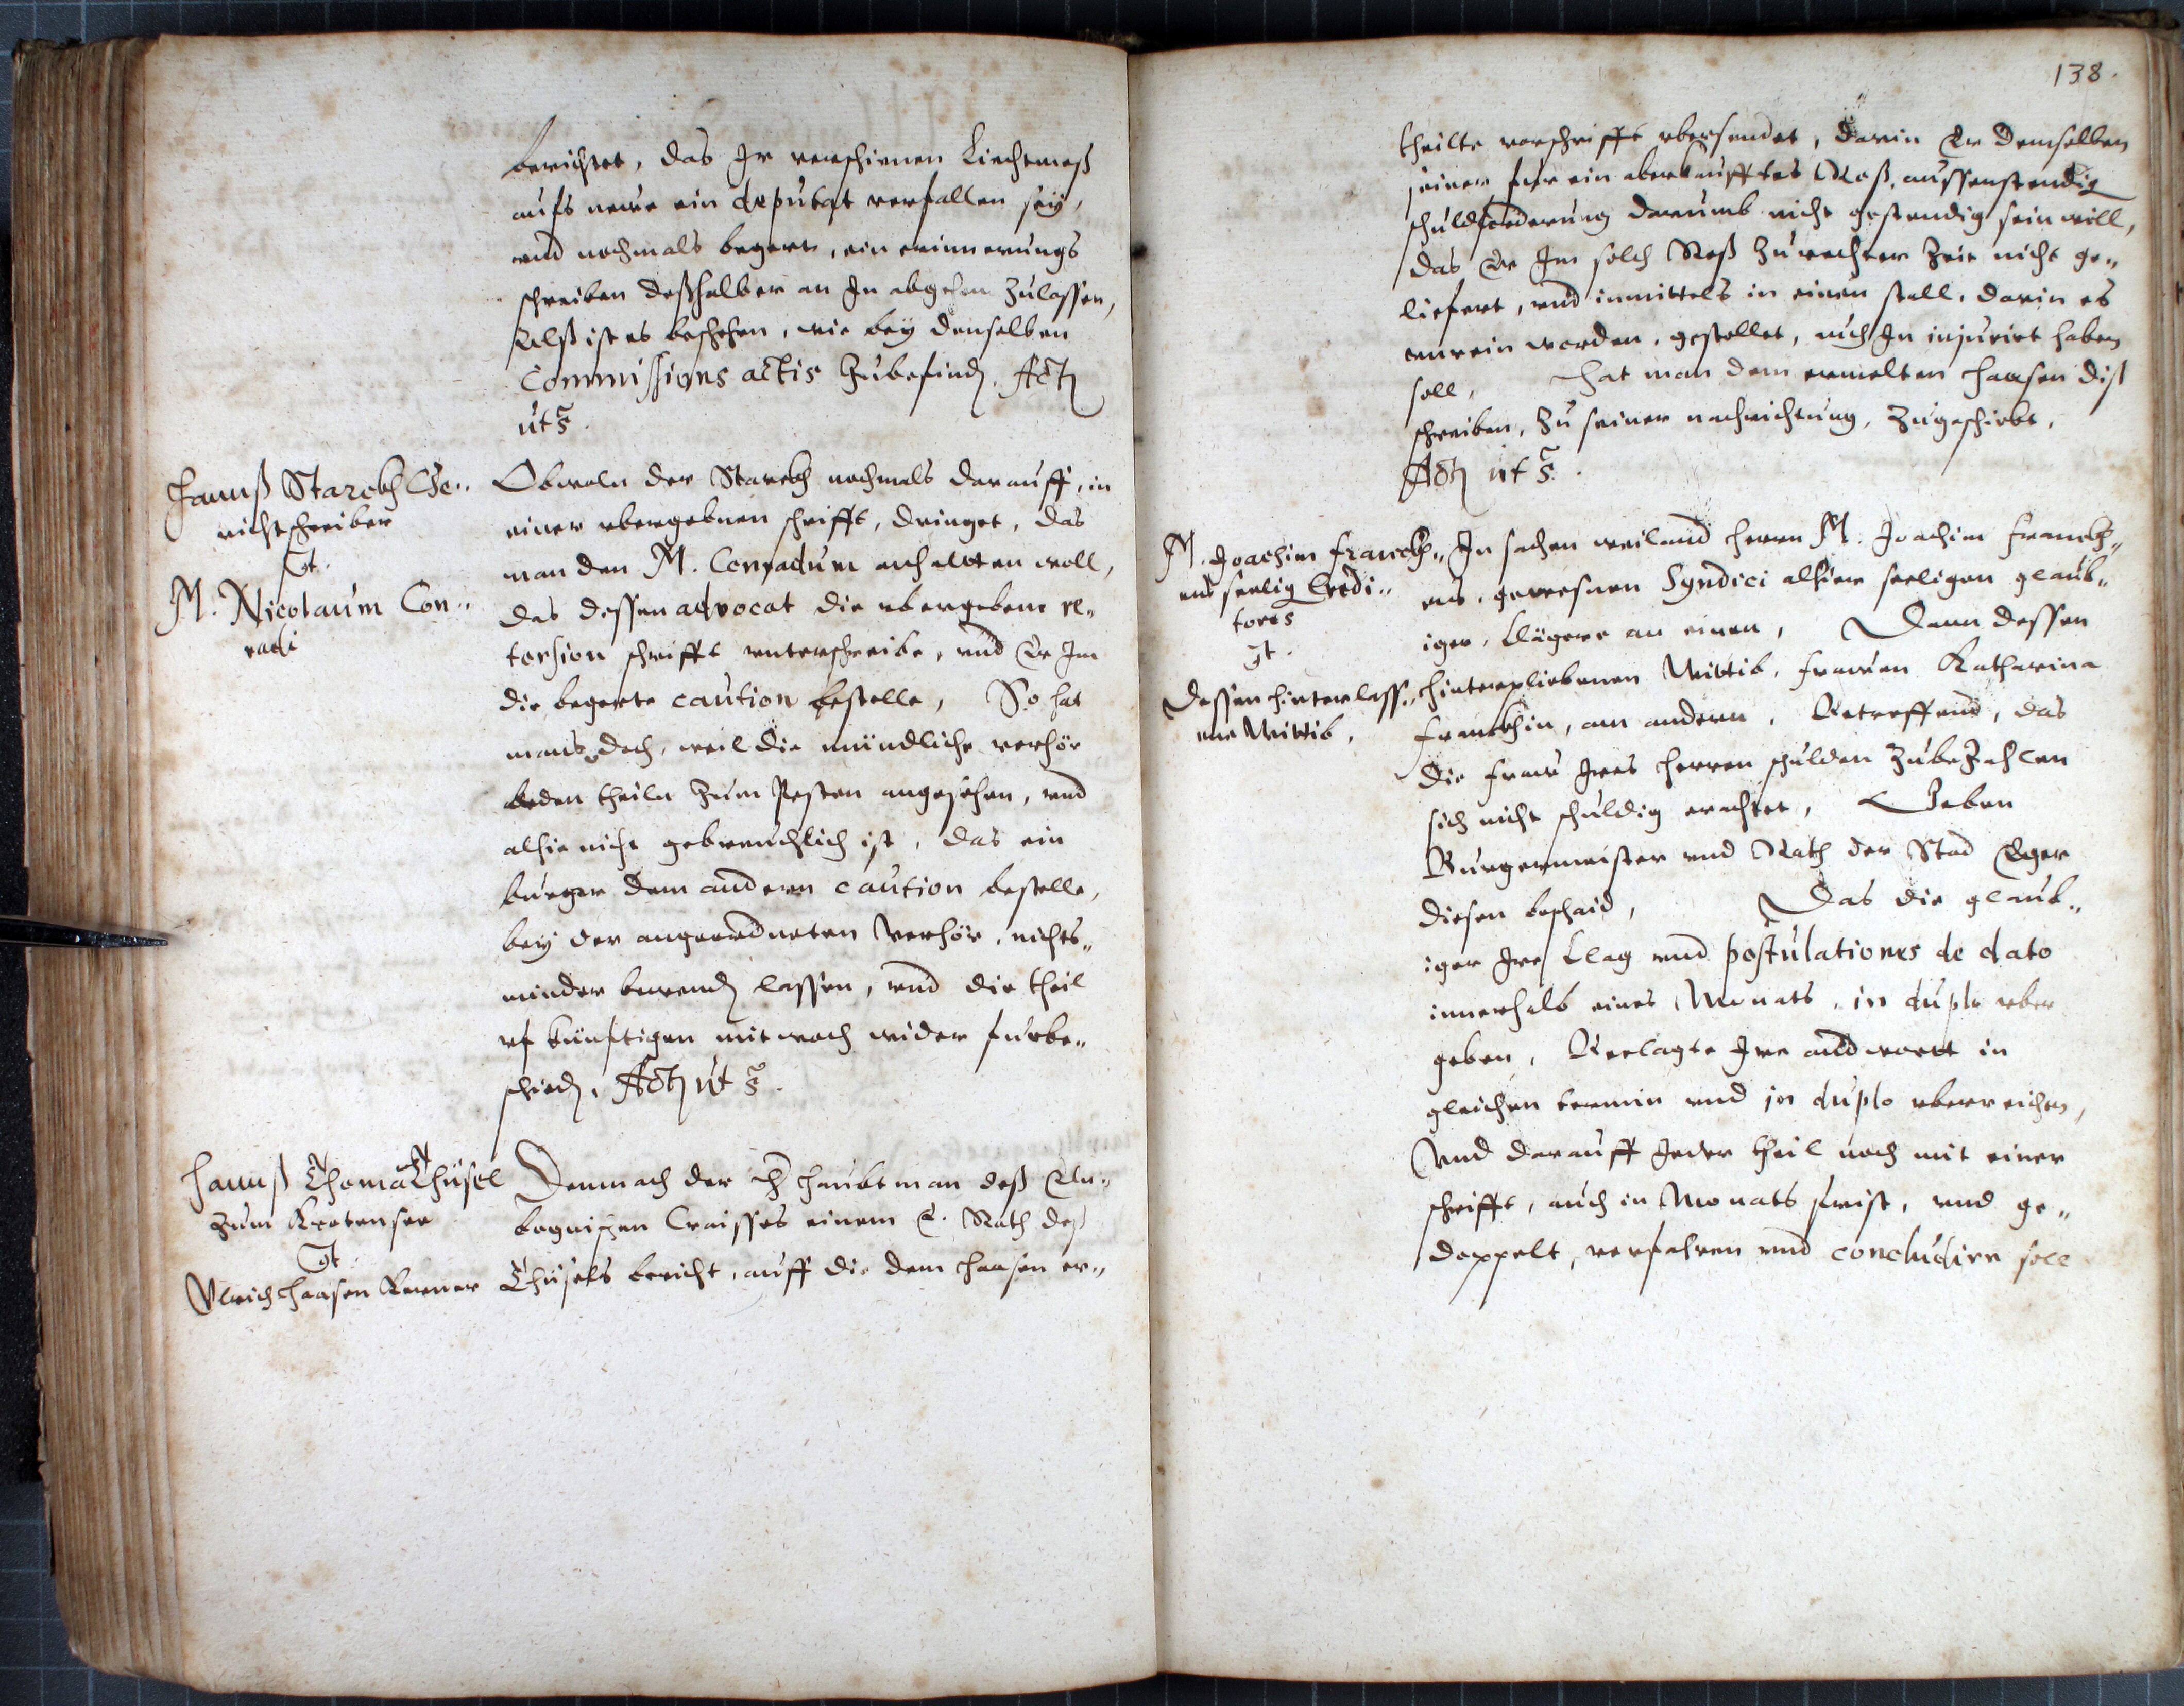 berichtet, das Jr verschienen Liechtmeß
aufs newe ein deputat verfallen sey,
vnd nochmals begert, ein erinnerungs
schreiben deßhalben an In abgehen zulassen,
Alß ist es beschehen, wie bey denselben
Commissions actis zubefinden. Actum
ut s.
Hannß Starckh Ge„
richtschreiber
Ct.
M. Nicolaum Con„
radi
Obwoln der Starckh nochmals darauff, in
einer vbergebnen schrifft, dringet, das
man den M. Conradum anhaltten woll,
das dessen advocat die vbergebene re„
torsion schrifft vnterschreibe, vnd Er Im
die begerte caution bestelle, So hat
mans doch, weil die mündliche verhör
beden theiln zum besten angesehen, vnd
alhie nicht gebreuchlich ist, das ein
burger dem andern caution bestelle,
bey der angeordneten Verhör, nichts„
minder bewenden lassen, vnd die theil
vf künfftigen mitwoch wider fürbe„
schieden. Actum ut s.
Hannß Thoma Thüsel
zum Krotensee
Ct.
Vlrich Haasen Kramer
Demnach der H. Haubtman deß Eln„
bognischen Craisses einem E. Rath deß
Thüsels bericht, auff die dem Haasen er„
138.
theilte vorschrifft vbersendet, darin Er demselben
seiner fur ein aberkaufftes Roß, aussenstendig
schuldforderung darumb nicht gestendig sein will,
das Er Im solch Roß zu rechter Zeit nicht ge„
liefert, vnd inmittels in einen stall, darin es
vnrein worden, gestellet, auch In injurirt haben
soll, Hat man dem ermelten Haasen diß
schreiben, zu seiner nachrichtung, zugeschickt.
Actum ut s.
M. Joachim Franckh„
ens seelig Credi„
tores
Ct.
Dessen hinterlass„
ene Wittib.
In sachen weiland Herrn M. Joachim Franckh„
ens, gewesnen Syndici alhier seeligen glaub„
iger, Clägere an einen, Dann dessen
hinterpliebenen Wittib, Frawen Katharina
Franckhin, am andern, Betreffend, das
die Fraw Ires Herren schulden zubezahlen
sich nicht schuldig erachtet, Geben
Burgermeister vnd Rath der Stad Eger
diesen beschaid, Das die glaub„
iger Ire Clag vnd postulationes de dato
innerhalb eines Monats, in duplo vber
geben, Beclagte Ire andwortt in
gleichen termin vnd in duplo vberreichen,
Vnd darauff Jeder theil noch mit einer
schrifft, auch in Monats frist, vnd ge„
doppelt, verfahren vnd concludirn soll